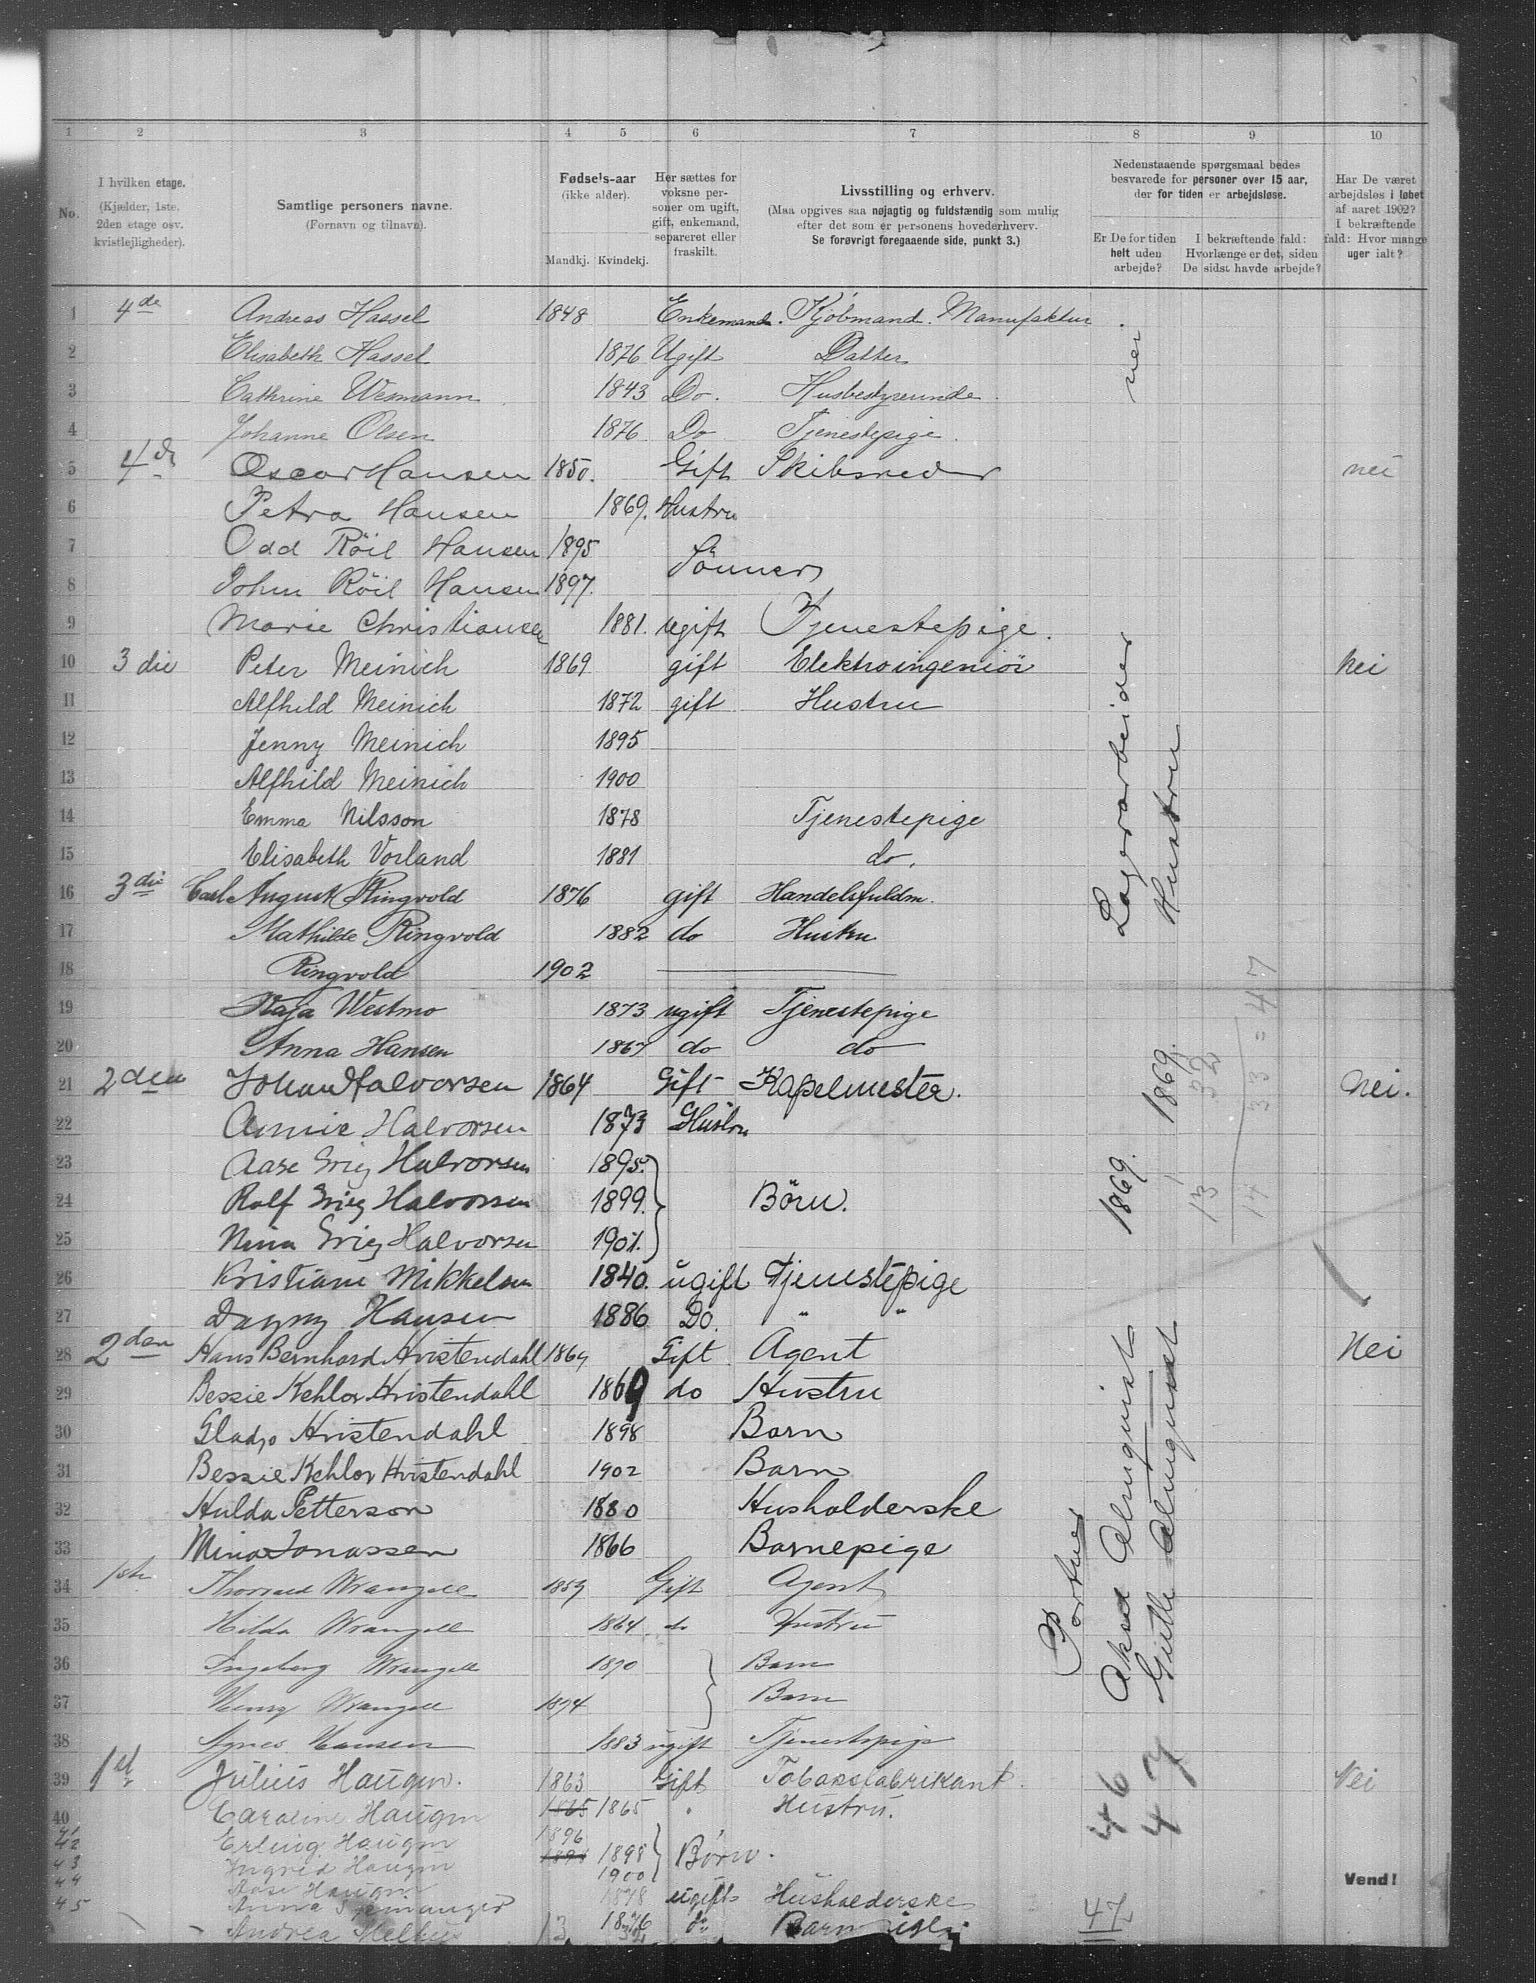 1 2 3 4 5 6 7 8 9 10
No.
I hvilken etage.
(Kjælder, 1ste.
2den etage osv.
kvistlejligheder).
Samtlige personers navne.
(Fornavn og tilnavn).
Fødsels-aar
(ikke alder).
Mandkj. Kvindekj.
Her sættes for
voksne per-
soner om ugift,
gift, enkemand,
separeret eller
fraskilt.
Livsstilling og erhverv.
(Maa opgives saa nøjagtig og fuldstændig som mulig
efter det som er personens hovederhverv.
Se forøvrigt foregaaende side, punkt 3.)
Nedenstaaende spørgsmaal bedes
besvarede for personer over 15 aar,
der for tiden er arbejdsløse.
Er De for tiden
helt uden
arbejde?
I bekræftende fald:
Hvorlænge er det, siden
De sidst havde arbejde?
Har De været
arbejdsløs i løbet
af aaret 1902?
I bekræftende
fald: Hvor mange
uger ialt?
1 4de Andreas Hassel 1848 Enkemand. Kjøbmand. Manufaktur
2 Elisabeth Hassel 1876 Ugift Datter
3 Cathrine Wesmann 1843 Do. Husbestyrerinde
4 Johanne Olsen 1876 Do Tjenestepige.
nei
5 4de Oscar Hansen 1850. Gift Skibsreder nei
6 Petra Hansen 1869. Hustru
7 Odd Röil Hansen 1895
Sönner
8 John Röil Hansen 1897.
9 Marie Christiansen 1881. ugift Tjenestepige.
10 3die Peter Meinich 1869 gift Elektroingeniör Nei
11 Alfhild Meinich 1872 gift Hustru
12 Jenny Meinich 1895
13 Alfhild Meinich 1900
14 Emma Nilsson 1878 Tjenestepige
15 Elisabeth Vorland 1881 do.
16 3die Carl August Ringvold 1876 gift Handelsfuldm.
17 Mathilde Ringvold 1882 do Hustru
18 Ringvold 1902
19 Kaja Westmo 1873 ugift Tjenestepige
20 Anna Hansen 1867 do do
21 2den Johan Halvorsen 1864 Gift Kapelmester. Nei.
22 Annie Halvorsen 1873 Hustru
23 Aase Grieg Halvorsen 1895.
24 Rolf Grieg Halvorsen 1899. Börn.
25 Nina Grieg Halvorsen 1901.
26 Kristiane Mikkelsen 1840. ugift Tjenestepige
27 Dagny Hansen 1886 Do. " "
28 2den Hans Bernhard Hvistendahl 1864 Gift Agent Nei
29 Bessie Kehlor Hvistendahl 1869 do Hustru
30 Gladys Hvistendahl 1898 Barn
31 Bessie Kehlor Hvistendahl 1902 Barn
32 Hulda Petterson 1880 Husholderske
33 Mina Jonassen 1866 Barnepige
34 1ste Thorvald Wrangell 1859 Gift Agent
35 Hilda Wrangell 1864 do Hustru
36 Ingeborg Wrangell 1890 Barn
37 Henry Wrangell 1894 Barn
38 Agnes Hansen 1883 ugift Tjenestepige
39 1ste Julius Haugen. 1863 Gift Tobaksfabrikant. Nei
40 Caroline Haugen 1865 1865 " Hustru.
41 Erling Haugen 1896
42 Ingrid Haugen 1898 1898 Börn.
43 Aase Haugen 1900
44 Anna 1878 ugift Husholderske
45 Andrea Melhus 13 1876 do Barnepige
Portner
Aksel Almquist 1869. Lagerarbeider
Gitte Almquist 1869. Hustru
13 32
14 33 = 47
46
47
47
Vend!